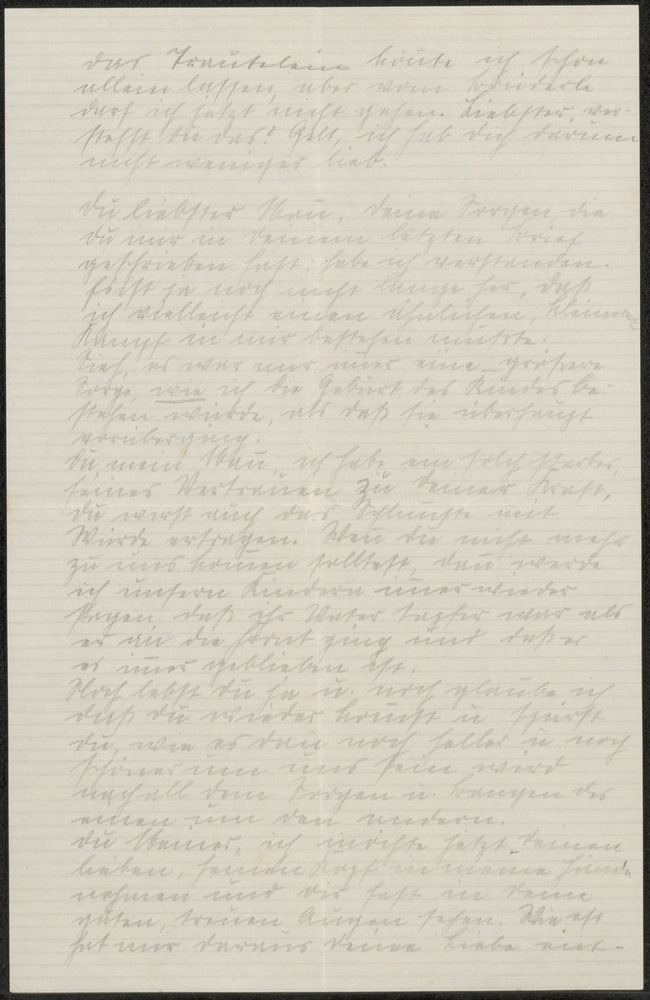 das Trautelein könnte ich schon
allein lassen, aber vom Brüderle
darf ich jetzt nicht gehen. Liebster, ver-
stehst du das? Gelt, ich hab dich darum
nicht weniger lieb.
Du liebster Mañ, deine Sorgen, die
du mir in deinem letzten Brief
geschrieben hast, habe ich verstanden.
ist ja noch nicht lange her, daß
ich vielleicht einen ähnlichen, kleineren
Kampf in mir bestehen mußte.
Sieh, es war mir im̄er eine größere
Sorge, wie ich die Geburt des Kindes be-
stehen würde, als daß sie überhaupt
vorüberging.
Du, mein Mañ, ich habe ein solch starkes,
Vertrauen zu deiner Kraft,
du wirst auch das Schlim̄ste mit
Würde ertragen. Weñ du nicht mehr
zu uns kom̄en solltest, dañ werde
ich unsern Kindern im̄er wieder
sagen, daß ihr Vater tapfer war als
er an die Front ging und daß er
es im̄er geblieben ist.
Noch lebst du ja u. noch glaube ich
daß du wieder kom̄st u. spürst
du, wie es dañ noch heller u. noch
schöner um uns sein wird
nach all dem Sorgen u. Bangen des
einen um den andern.
Du Meiner, ich möchte jetzt deinen
lieben, feinen Kopf in meine Hände
nehmen und dir fest in deine
guten, treuen Augen sehen. Wie oft
hat mir daraus deine Liebe ent-